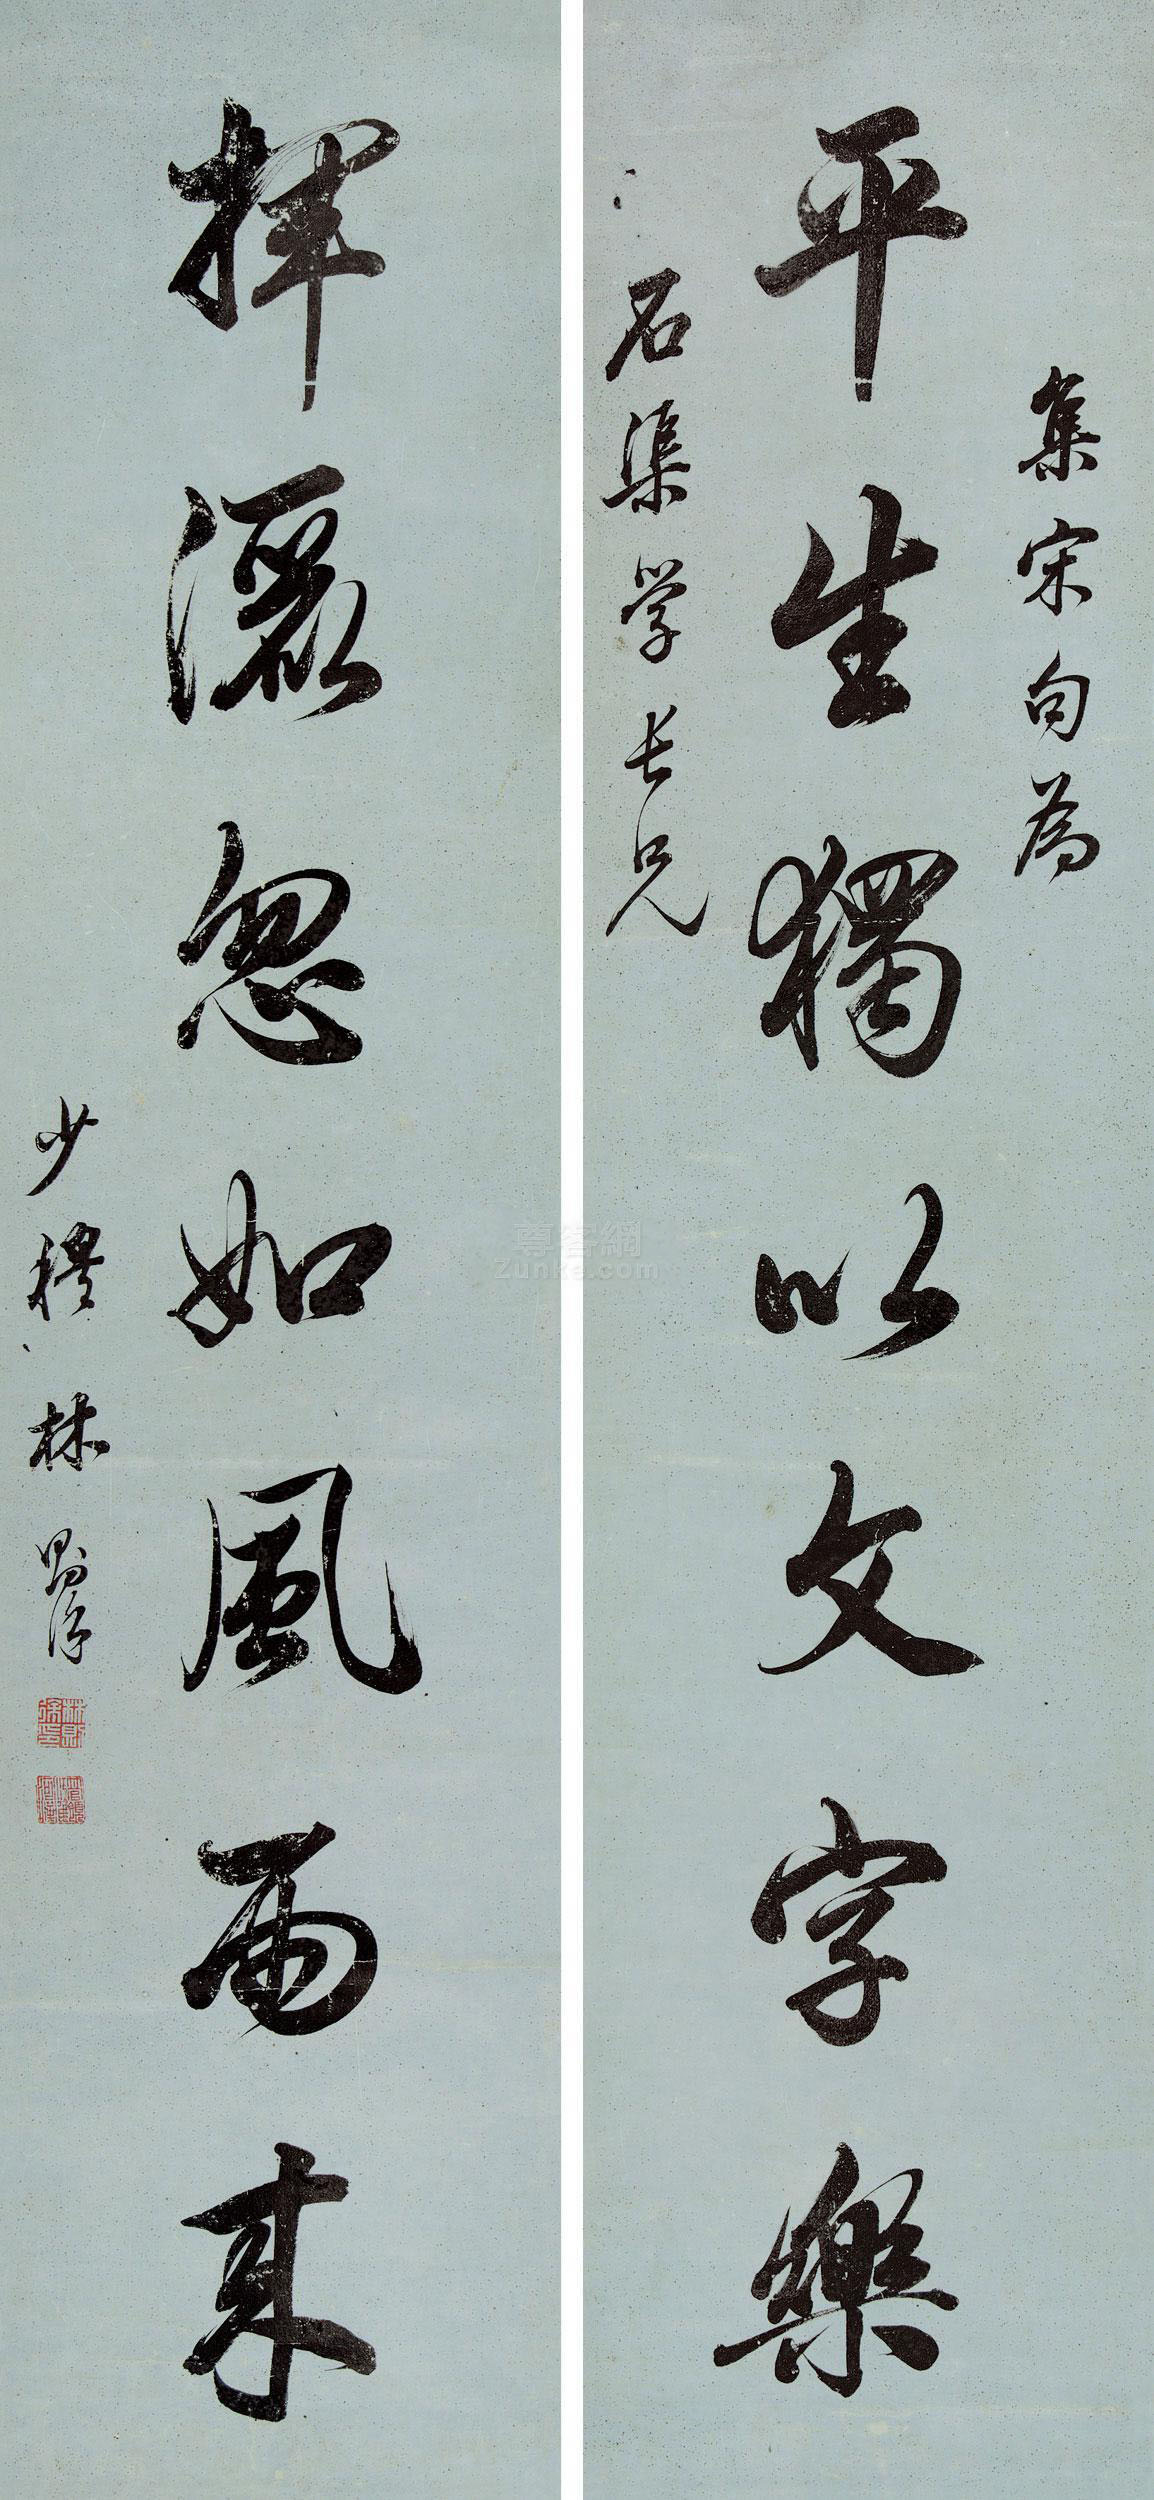 集宋句為
平生獨以文字樂
石渠學長兄
揮灑忽如風雨來
少穆林則徐
林則徐印
尊客網
Zunke.com